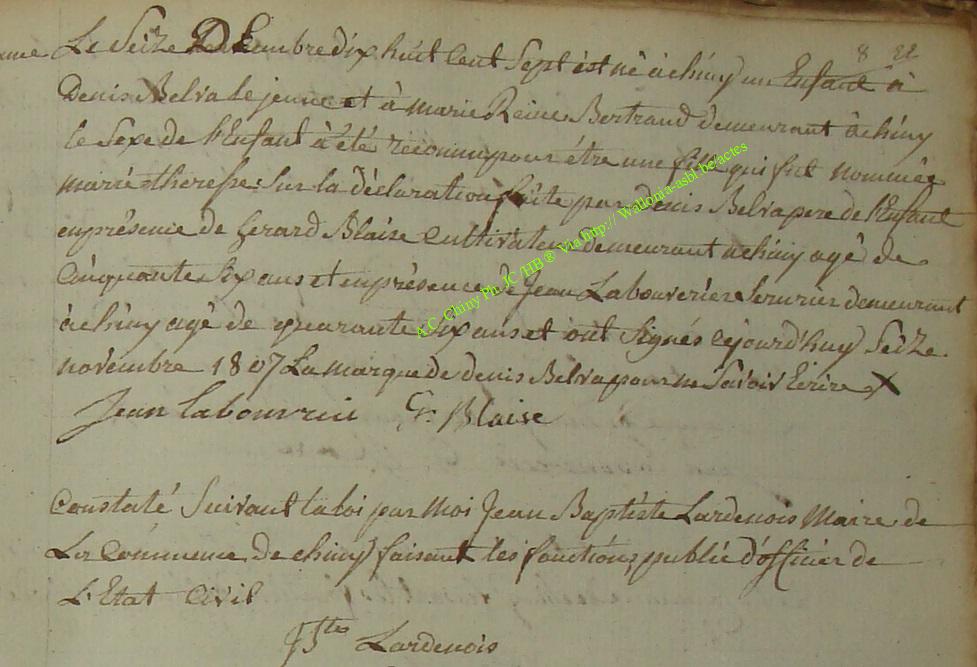 8 22
Le Seize Dexembre dix huit Cent Sept est né à chiny un Enfant à
Denis Belva Le jeune et à marie Reine Bertrand demeurant à chiny
le Sexe de l'Enfant à été reconnu pour être une fille qui fut nommée
marie therese sur la déclaration faite par denis Belva pere de l'Enfant
en présence de Gerard Blaise Cultivateur demeurant a chiny agé de
Cinquante Six ans et en présence de Jean Labouverie Serurier demeurant
à chiny agé de quarante Six ans et ont Signés cejourd'huy Seize
novembre 1807 La marque de denis Belva pour ne Savoir Ecrire X
Jean labouverie G. Blaise
Constaté Suivant la loi par Moi Jean Baptiste Lardenois Maire de
La Commune de chiny faisant les fonctions publié d'officier de
L'Etat Civil
Lardenois
A.C. Chiny Ph JC /HB ® Via http:// Wallonia-asbl.be/actes